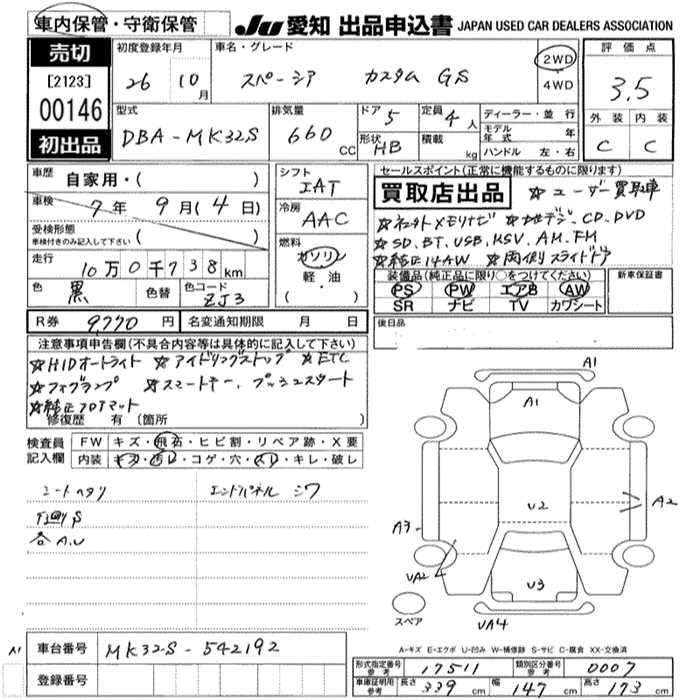 車内保管・守衛保管
JU 愛知 出品申込書 JAPAN USED CAR DEALERS ASSOCIATION
売切
[2123]
00146
初出品
初度登録年月
26 10月
車名・グレード
スペーシア カスタム GS
2WD
・
4WD
評価点
3.5
外装 内装
C C
型式
DBA-MK32S
排気量
660 CC
ドア 5
形状 HB
定員 4人
積載 kg
ディーラー・並行
モデル年式 年
ハンドル 左・右
車歴 自家用・( )
車検 7年 9月(4日)
受検形態
車検付きのみ記入して下さい ( )
走行
10万0千738km
色 黒 色替 色コード ZJ3
シフト
IAT
冷房
AAC
燃料
ガソリン
軽油
( )
セールスポイント(正常に機能するものに限ります)
買取店出品 ☆ユーザー買取車
☆ネットメモリナビ ☆地デジ、CD、DVD
☆SD、BT、USB、MSV、AM、FM
☆純正14AW ☆両側スライドドア
装備品(純正品に限り○をつけてください)
PS PW エアB AW
SR ナビ TV カワシート
新車保証書
後日品
R券 9,770円 名変通知期限 月 日
注意事項申告欄(不具合内容等は具体的に記入して下さい)
☆HIDオートライト ☆アイドリングストップ ☆ETC
☆フォグランプ ☆スマートキー、プッシュスタート
☆純正フロアマット
修復歴 有 (箇所 )
検査員
記入欄
FW キズ・飛石・ヒビ割・リペア跡・X要
内装 キズ・汚レ・コゲ・穴・スレ・キレ・破レ
シートヘタリ エンドパネル シワ
下廻りS
各A.U
A1
A1
U2
A2
A3
UA2
U3
UA4
スペア
A-キズ E-エクボ U-凹み W-補修跡 S-サビ C-腐食 XX-交換済
A1
車台番号 MK32S-542192
登録番号
形式指定番号
参考 17511
類別区分番号
参考 0007
車庫証明用
参考 長さ 339cm 幅 147cm 高さ 173cm